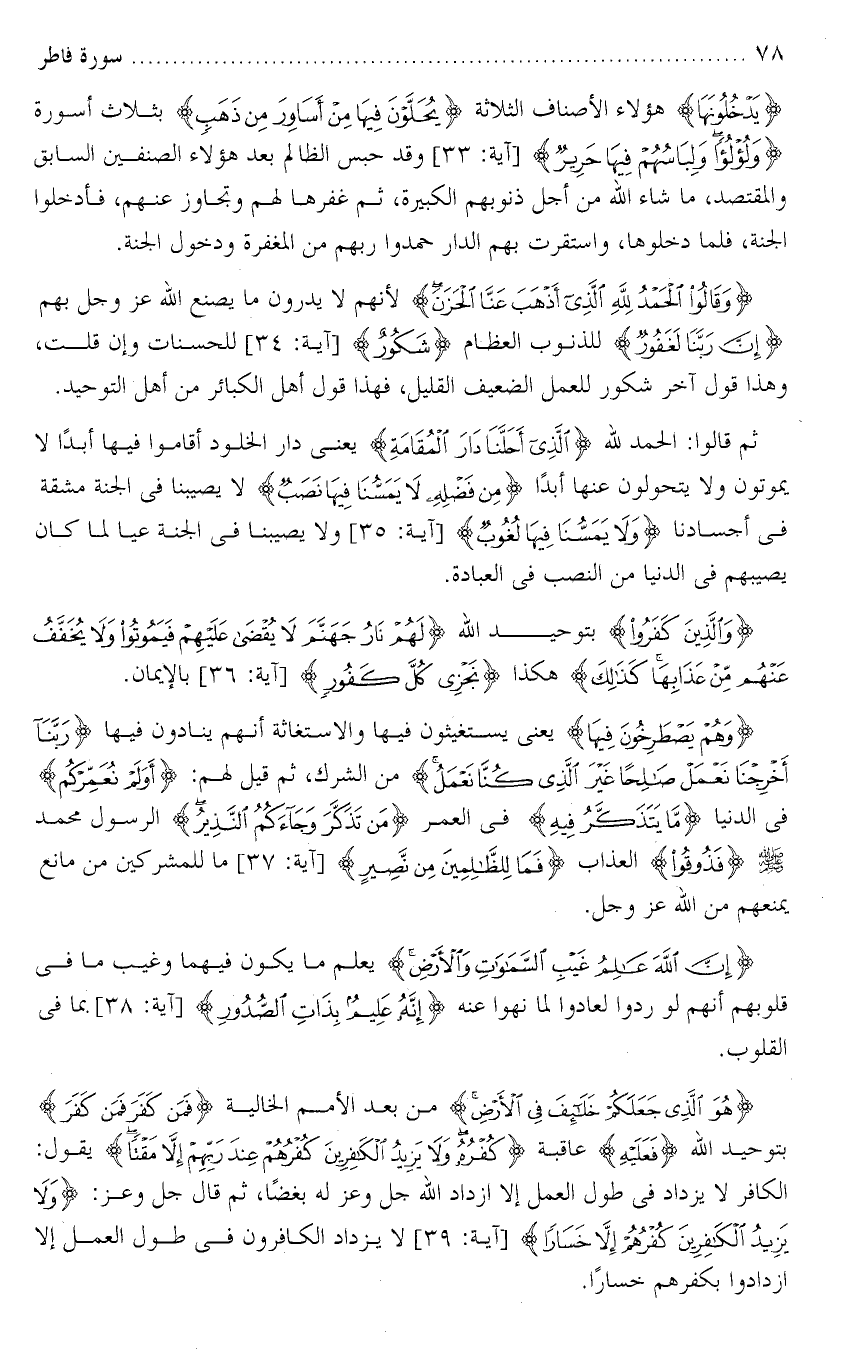 ٧٨ ........................................................................... سورة فاطر
﴿يَدْخُلُونَهَا﴾ هؤلاء الأصناف الثلاثة ﴿يُحَلَّوْنَ فِيهَا مِنْ أَسَاوِرَ مِن ذَهَبٍ﴾ بثلاث أسورة
﴿وَلُؤْلُؤًا وَلِبَاسُهُمْ فِيهَا حَرِيرٌ﴾ [آية: ٣٣] وقد حبس الظالم بعد هؤلاء الصنفين السابق
والمقتصد، ما شاء الله من أجل ذنوبهم الكبيرة، ثم غفرها لهم وتجاوز عنهم، فأدخلوا
الجنة، فلما دخلوها، واستقرت بهم الدار حمدوا ربهم من المغفرة ودخول الجنة.
﴿وَقَالُوا۟ ٱلْحَمْدُ لِلَّهِ ٱلَّذِىٓ أَذْهَبَ عَنَّا ٱلْحَزَنَ﴾ لأنهم لا يدرون ما يصنع الله عز وجل بهم
﴿إِنَّ رَبَّنَا لَغَفُورٌ﴾ للذنوب العظام ﴿شَكُورٌ﴾ [آية: ٣٤] للحسنات وإن قلت،
وهذا قول آخر شكور للعمل الضعيف القليل، فهذا قول أهل الكبائر من أهل التوحيد.
ثم قالوا: الحمد لله ﴿ٱلَّذِىٓ أَحَلَّنَا دَارَ ٱلْمُقَامَةِ﴾ يعنى دار الخلود أقاموا فيها أبدًا لا
يموتون ولا يتحولون عنها أبدًا ﴿مِن فَضْلِهِۦ لَا يَمَسُّنَا فِيهَا نَصَبٌ﴾ لا يصيبنا فى الجنة مشقة
فى أجسادنا ﴿وَلَا يَمَسُّنَا فِيهَا لُغُوبٌ﴾ [آية: ٣٥] ولا يصيبنا فى الجنة عيا لما كان
يصيبهم فى الدنيا من النصب فى العبادة.
﴿وَٱلَّذِينَ كَفَرُوا۟﴾ بتوحيد الله ﴿لَهُمْ نَارُ جَهَنَّمَ لَا يُقْضَىٰ عَلَيْهِمْ فَيَمُوتُوا۟ وَلَا يُخَفَّفُ
عَنْهُم مِّنْ عَذَابِهَا ۚ كَذَٰلِكَ﴾ هكذا ﴿نَجْزِى كُلَّ كَفُورٍ﴾ [آية: ٣٦] بالإيمان.
﴿وَهُمْ يَصْطَرِخُونَ فِيهَا﴾ يعنى يستغيثون فيها والاستغاثة أنهم ينادون فيها ﴿رَبَّنَآ
أَخْرِجْنَا نَعْمَلْ صَـٰلِحًا غَيْرَ ٱلَّذِى كُنَّا نَعْمَلُ ۚ﴾ من الشرك، ثم قيل لهم: ﴿أَوَلَمْ نُعَمِّرْكُم﴾
فى الدنيا ﴿مَّا يَتَذَكَّرُ فِيهِ﴾ فى العمر ﴿مَن تَذَكَّرَ وَجَآءَكُمُ ٱلنَّذِيرُ ۖ﴾ الرسول محمد
ﷺ ﴿فَذُوقُوا۟﴾ العذاب ﴿فَمَا لِلظَّـٰلِمِينَ مِن نَّصِيرٍ﴾ [آية: ٣٧] ما للمشركين من مانع
يمنعهم من الله عز وجل.
﴿إِنَّ ٱللَّهَ عَـٰلِمُ غَيْبِ ٱلسَّمَـٰوَٰتِ وَٱلْأَرْضِ ۚ﴾ يعلم ما يكون فيهما وغيب ما فى
قلوبهم أنهم لو ردوا لعادوا لما نهوا عنه ﴿إِنَّهُۥ عَلِيمٌۢ بِذَاتِ ٱلصُّدُورِ﴾ [آية: ٣٨] بما فى
القلوب.
﴿هُوَ ٱلَّذِى جَعَلَكُمْ خَلَـٰٓئِفَ فِى ٱلْأَرْضِ ۚ﴾ من بعد الأمم الخالية ﴿فَمَن كَفَرَ فَمَن كَفَرَ﴾
بتوحيد الله ﴿فَعَلَيْهِ﴾ عاقبة ﴿كُفْرُهُۥ ۖ وَلَا يَزِيدُ ٱلْكَـٰفِرِينَ كُفْرُهُمْ عِندَ رَبِّهِمْ إِلَّا مَقْتًا ۖ﴾ يقول:
الكافر لا يزداد فى طول العمل إلا ازداد الله جل وعز له بغضًا، ثم قال جل وعز: ﴿وَلَا
يَزِيدُ ٱلْكَـٰفِرِينَ كُفْرُهُمْ إِلَّا خَسَارًا﴾ [آية: ٣٩] لا يزداد الكافرون فى طول العمل إلا
ازدادوا بكفرهم خسارًا.